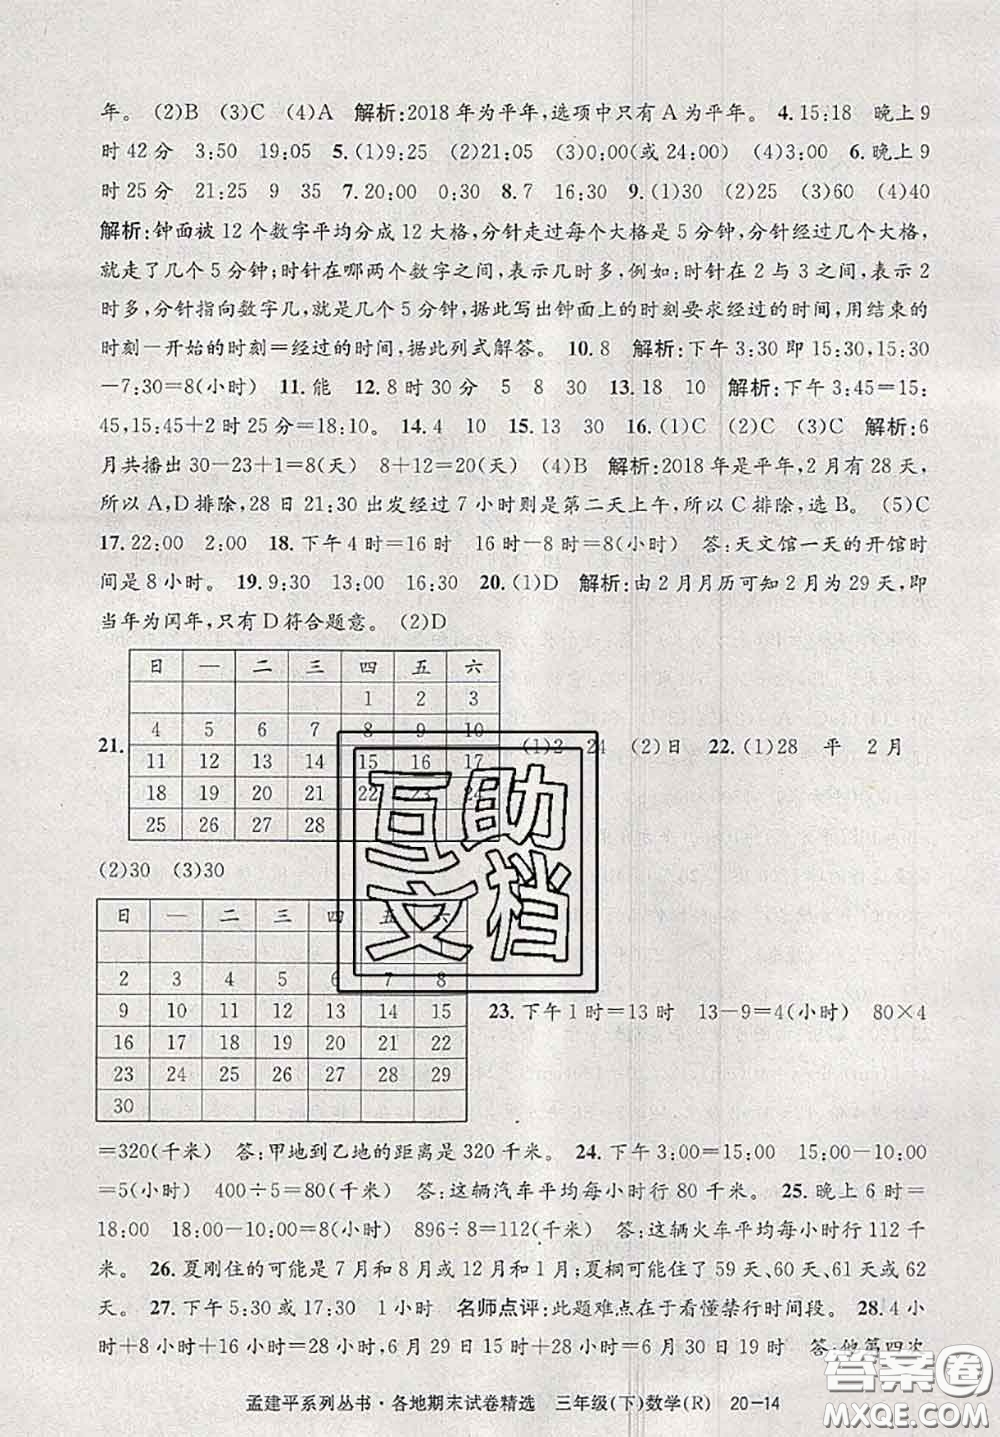 年。 (2)B (3)C (4)A 解析:2018年为平年,选项中只有A为平年。 4.15:18 晚上9
时42分 3:50 19:05 5.(1)9:25 (2)21:05 (3)0:00(或24:00) (4)3:00 6.晚上9
时25分 21:25 9 35 7.20:00 0:30 8.7 16:30 9.(1)30 (2)25 (3)60 (4)40
解析:钟面被12个数字平均分成12大格,分针走过每个大格是5分钟,分针经过几个大格,
就走了几个5分钟;时针在哪两个数字之间,表示几时多,例如:时针在2与3之间,表示2
时多,分针指向数字几,就是几个5分钟,据此写出钟面上的时刻要求经过的时间,用结束的
时刻-开始的时刻=经过的时间,据此列式解答。 10.8 解析:下午3:30即15:30,15:30
-7:30=8(小时) 11.能 12.8时30分 5 8 30 13.18 10 解析:下午3:45=15:
45,15:45+2时25分=18:10。 14.4 10 15.13 30 16.(1)C (2)C (3)C 解析:6
月共播出30-23+1=8(天) 8+12=20(天) (4)B 解析:2018年是平年,2月有28天,
所以A,D排除,28日21:30出发经过7小时则是第二天上午,所以C排除,选B。 (5)C
17.22:00 2:00 18.下午4时=16时 16时-8时=8时 答:天文馆一天的开馆时
间是8小时。 19.9:30 13:00 16:30 20.(1)D 解析:由2月月历可知2月为29天,即
当年为闰年,只有D符合题意。 (2)D
日 一 二 三 四 五 六
1 2 3
4 5 6 7 8 9 10
21. (1)2 24 (2)日 22.(1)28 平 2月
11 12 13 14 15 16 17
18 19 20 21 22 23 24
25 26 27 28
(2)30 (3)30
日 一 二 三 四 五 六
1
2 3 4 5 6 7 8
9 10 11 12 13 14 15
23.下午1时=13时 13-9=4(小时) 80×4
16 17 18 19 20 21 22
23 24 25 26 27 28 29
30
=320(千米) 答:甲地到乙地的距离是320千米。 24.下午3:00=15:00 15:00-10:00
=5(小时) 400÷5=80(千米) 答:这辆汽车平均每小时行80千米。 25.晚上6时=
18:00 18:00-10:00=8(小时) 896÷8=112(千米) 答:这辆火车平均每小时行112千
米。 26.夏刚住的可能是7月和8月或12月和1月;夏桐可能住了59天、60天、61天或62
天。 27.下午5:30或17:30 1小时 名师点评:此题难点在于看懂禁行时间段。 28.4小
时+8小时+16小时=28小时,6月29日15时+28小时=6月30日19时 答:他第四次
孟建平系列丛书·各地期末试卷精选 三年级(下)数学(R) 20-14
互助
文档
答案圈
MXQE.COM